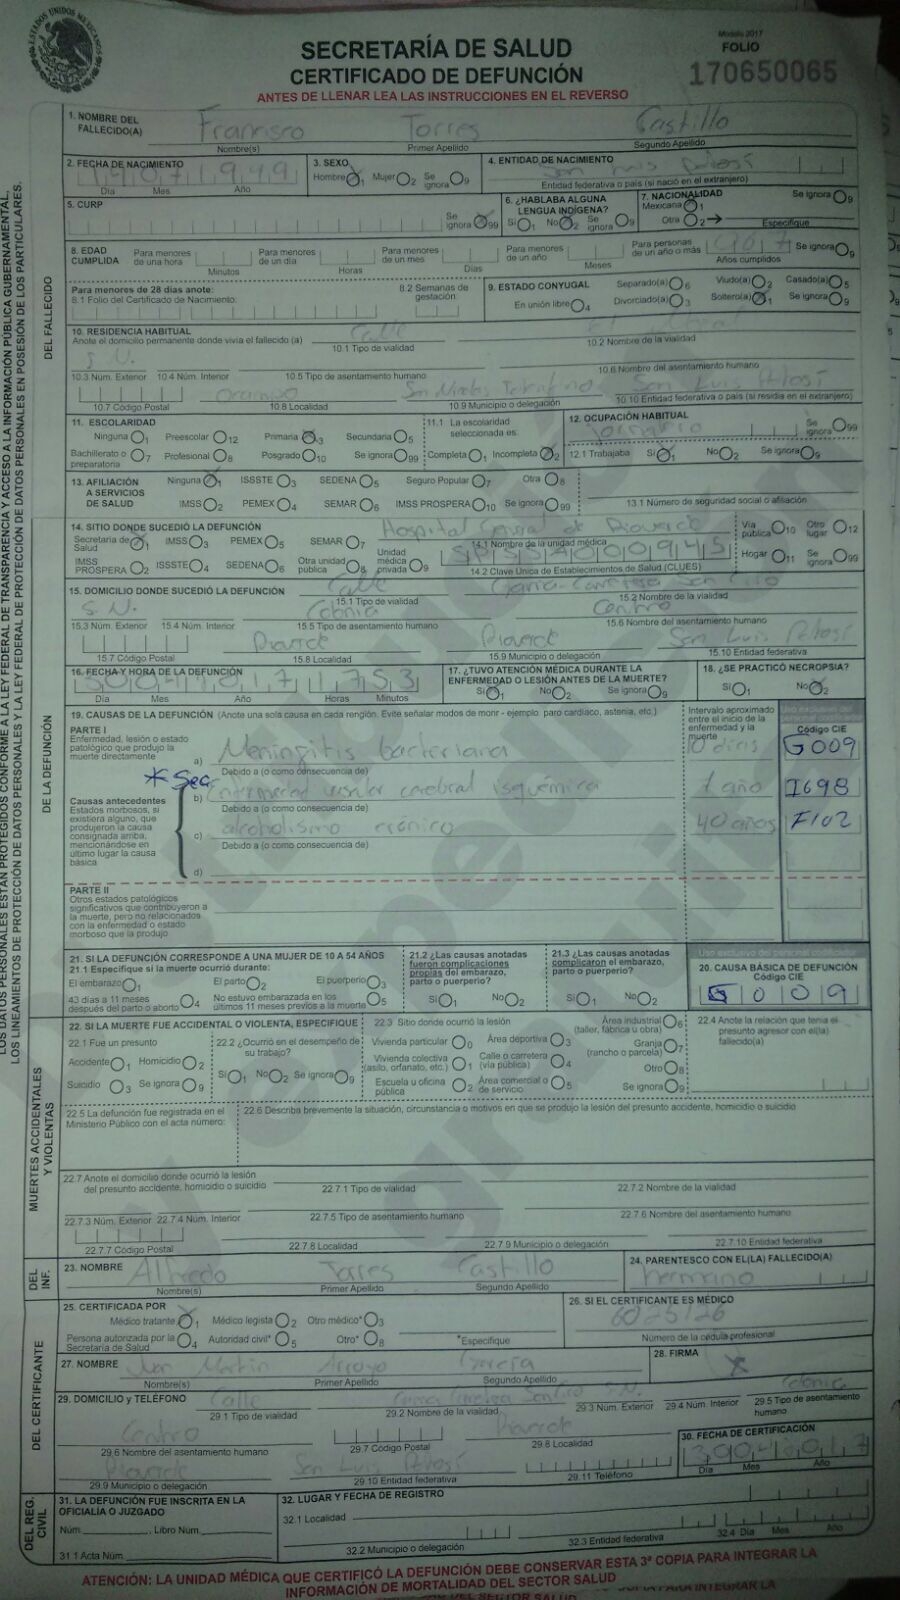 ESTADOS UNIDOS MEXICANOS
Modelo 2017
SECRETARÍA DE SALUD
FOLIO
CERTIFICADO DE DEFUNCIÓN
170650065
ANTES DE LLENAR LEA LAS INSTRUCCIONES EN EL REVERSO
1. NOMBRE DEL FALLECIDO(A) Francisco Torres Castillo
Nombre(s) Primer Apellido Segundo Apellido
2. FECHA DE NACIMIENTO 3. SEXO 4. ENTIDAD DE NACIMIENTO San Luis Potosí
Hombre 1 Mujer 2 Se ignora 9
Día Mes Año Entidad federativa o país (si nació en el extranjero)
5. CURP Se ignora 99 6. ¿HABLABA ALGUNA LENGUA INDÍGENA? 7. NACIONALIDAD Se ignora 9
Sí 1 No 2 Se ignora 9 Mexicana 1 Otra 2 Especifique
8. EDAD CUMPLIDA Para menores de una hora Para menores de un día Para menores de un mes Para menores de un año Para personas de un año o más Se ignora 9
Minutos Horas Días Meses Años cumplidos
Para menores de 28 días anote: 8.2 Semanas de gestación: 9. ESTADO CONYUGAL Separado(a) 6 Viudo(a) 2 Casado(a) 5
8.1 Folio del Certificado de Nacimiento: En unión libre 4 Divorciado(a) 3 Soltero(a) 1 Se ignora 9
10. RESIDENCIA HABITUAL Calle
Anote el domicilio permanente donde vivía el fallecido (a) 10.1 Tipo de vialidad 10.2 Nombre de la vialidad
S.N.
10.3 Núm. Exterior 10.4 Núm. Interior 10.5 Tipo de asentamiento humano 10.6 Nombre del asentamiento humano
Ocampo San Nicolas Tolentino San Luis Potosí
10.7 Código Postal 10.8 Localidad 10.9 Municipio o delegación 10.10 Entidad federativa o país (si residía en el extranjero)
11. ESCOLARIDAD 11.1 La escolaridad seleccionada es: 12. OCUPACIÓN HABITUAL Jornalero Se ignora 99
Ninguna 1 Preescolar 12 Primaria 3 Secundaria 5
Bachillerato o preparatoria 7 Profesional 8 Posgrado 10 Se ignora 99 Completa 1 Incompleta 2 12.1 Trabajaba Sí 1 No 2 Se ignora 9
13. AFILIACIÓN A SERVICIOS DE SALUD Ninguna 1 ISSSTE 3 SEDENA 5 Seguro Popular 7 Otra 8
IMSS 2 PEMEX 4 SEMAR 6 IMSS PROSPERA 10 Se ignora 99 13.1 Número de seguridad social o afiliación
14. SITIO DONDE SUCEDIÓ LA DEFUNCIÓN Hospital General de Rioverde Vía pública 10 Otro lugar 12
Secretaría de Salud 1 IMSS 3 PEMEX 5 SEMAR 7 14.1 Nombre de la unidad médica
IMSS PROSPERA 2 ISSSTE 4 SEDENA 6 Otra unidad pública 8 Unidad médica privada 9 SPSSA000945 Hogar 11 Se ignora 99
14.2 Clave Única de Establecimientos de Salud (CLUES)
15. DOMICILIO DONDE SUCEDIÓ LA DEFUNCIÓN Calle
15.1 Tipo de vialidad 15.2 Nombre de la vialidad
S.N. Colonia Centro
15.3 Núm. Exterior 15.4 Núm. Interior 15.5 Tipo de asentamiento humano 15.6 Nombre del asentamiento humano
Rioverde Rioverde San Luis Potosí
15.7 Código Postal 15.8 Localidad 15.9 Municipio o delegación 15.10 Entidad federativa
16. FECHA Y HORA DE LA DEFUNCIÓN 17. ¿TUVO ATENCIÓN MÉDICA DURANTE LA ENFERMEDAD O LESIÓN ANTES DE LA MUERTE? 18. ¿SE PRACTICÓ NECROPSIA?
30042017 1753 Sí 1 No 2 Se ignora 9 Sí 1 No 2
Día Mes Año Horas Minutos
19. CAUSAS DE LA DEFUNCIÓN (Anote una sola causa en cada renglón. Evite señalar modos de morir - ejemplo: paro cardíaco, astenia, etc.) Intervalo aproximado entre el inicio de la enfermedad y la muerte Uso exclusivo del personal codificador Código CIE
PARTE I
Enfermedad, lesión o estado patológico que produjo la muerte directamente a) Meningitis bacteriana 10 días G009
Debido a (o como consecuencia de)
* Sec
Causas antecedentes b) Enfermedad vascular cerebral isquémica 1 año I698
Estados morbosos, si existiera alguno, que produjeron la causa consignada arriba, mencionándose en último lugar la causa básica Debido a (o como consecuencia de)
c) alcoholismo crónico 40 años F102
Debido a (o como consecuencia de)
d)
PARTE II
Otros estados patológicos significativos que contribuyeron a la muerte, pero no relacionados con la enfermedad o estado morboso que la produjo
21. SI LA DEFUNCIÓN CORRESPONDE A UNA MUJER DE 10 A 54 AÑOS 21.2 ¿Las causas anotadas fueron complicaciones propias del embarazo, parto o puerperio? 21.3 ¿Las causas anotadas complicaron el embarazo, parto o puerperio? Uso exclusivo del personal codificador
21.1 Especifique si la muerte ocurrió durante: 20. CAUSA BÁSICA DE DEFUNCIÓN
El embarazo 1 El parto 2 El puerperio 3 Código CIE
43 días a 11 meses después del parto o aborto 4 No estuvo embarazada en los últimos 11 meses previos a la muerte 5 Sí 1 No 2 Sí 1 No 2 G009
22. SI LA MUERTE FUE ACCIDENTAL O VIOLENTA, ESPECIFIQUE 22.3 Sitio donde ocurrió la lesión Área industrial (taller, fábrica u obra) 6 22.4 Anote la relación que tenía el presunto agresor con el(la) fallecido(a)
22.1 Fue un presunto 22.2 ¿Ocurrió en el desempeño de su trabajo? Vivienda particular 0 Área deportiva 3 Granja (rancho o parcela) 7
Accidente 1 Homicidio 2 Sí 1 No 2 Se ignora 9 Vivienda colectiva (asilo, orfanato, etc.) 1 Calle o carretera (vía pública) 4 Otro 8
Suicidio 3 Se ignora 9 Escuela u oficina pública 2 Área comercial o de servicio 5 Se ignora 9
22.5 La defunción fue registrada en el Ministerio Público con el acta número: 22.6 Describa brevemente la situación, circunstancia o motivos en que se produjo la lesión del presunto accidente, homicidio o suicidio
22.7 Anote el domicilio donde ocurrió la lesión del presunto accidente, homicidio o suicidio 22.7.1 Tipo de vialidad 22.7.2 Nombre de la vialidad
22.7.3 Núm. Exterior 22.7.4 Núm. Interior 22.7.5 Tipo de asentamiento humano 22.7.6 Nombre del asentamiento humano
22.7.7 Código Postal 22.7.8 Localidad 22.7.9 Municipio o delegación 22.7.10 Entidad federativa
23. NOMBRE Alfredo Torres Castillo 24. PARENTESCO CON EL(LA) FALLECIDO(A) hermano
Nombre(s) Primer Apellido Segundo Apellido
25. CERTIFICADA POR 26. SI EL CERTIFICANTE ES MÉDICO
Médico tratante 1 Médico legista 2 Otro médico* 3 6025126
Persona autorizada por la Secretaría de Salud 4 Autoridad civil* 5 Otro* 8 *Especifique Número de la cédula profesional
27. NOMBRE Juan Martin Arroyo García 28. FIRMA
Nombre(s) Primer Apellido Segundo Apellido
29. DOMICILIO y TELÉFONO Calle S.N. Colonia
29.1 Tipo de vialidad 29.2 Nombre de la vialidad 29.3 Núm. Exterior 29.4 Núm. Interior 29.5 Tipo de asentamiento humano
Centro Rioverde 30. FECHA DE CERTIFICACIÓN
29.6 Nombre del asentamiento humano 29.7 Código Postal 29.8 Localidad 30042017
Rioverde San Luis Potosí Día Mes Año
29.9 Municipio o delegación 29.10 Entidad federativa 29.11 Teléfono
31. LA DEFUNCIÓN FUE INSCRITA EN LA OFICIALÍA O JUZGADO 32. LUGAR Y FECHA DE REGISTRO
32.1 Localidad
Núm. , Libro Núm.
31.1 Acta Núm. 32.2 Municipio o delegación 32.3 Entidad federativa 32.4 Día Mes Año
ATENCIÓN: LA UNIDAD MÉDICA QUE CERTIFICÓ LA DEFUNCIÓN DEBE CONSERVAR ESTA 3ª COPIA PARA INTEGRAR LA INFORMACIÓN DE MORTALIDAD DEL SECTOR SALUD
DEL FALLECIDO
DE LA DEFUNCIÓN
MUERTES ACCIDENTALES Y VIOLENTAS
DEL INF.
DEL CERTIFICANTE
DEL REG. CIVIL
LOS DATOS PERSONALES ESTÁN PROTEGIDOS CONFORME A LA LEY FEDERAL DE TRANSPARENCIA Y ACCESO A LA INFORMACIÓN PÚBLICA GUBERNAMENTAL,
LOS LINEAMIENTOS DE PROTECCIÓN DE DATOS PERSONALES Y LA LEY FEDERAL DE PROTECCIÓN DE DATOS PERSONALES EN POSESIÓN DE LOS PARTICULARES.